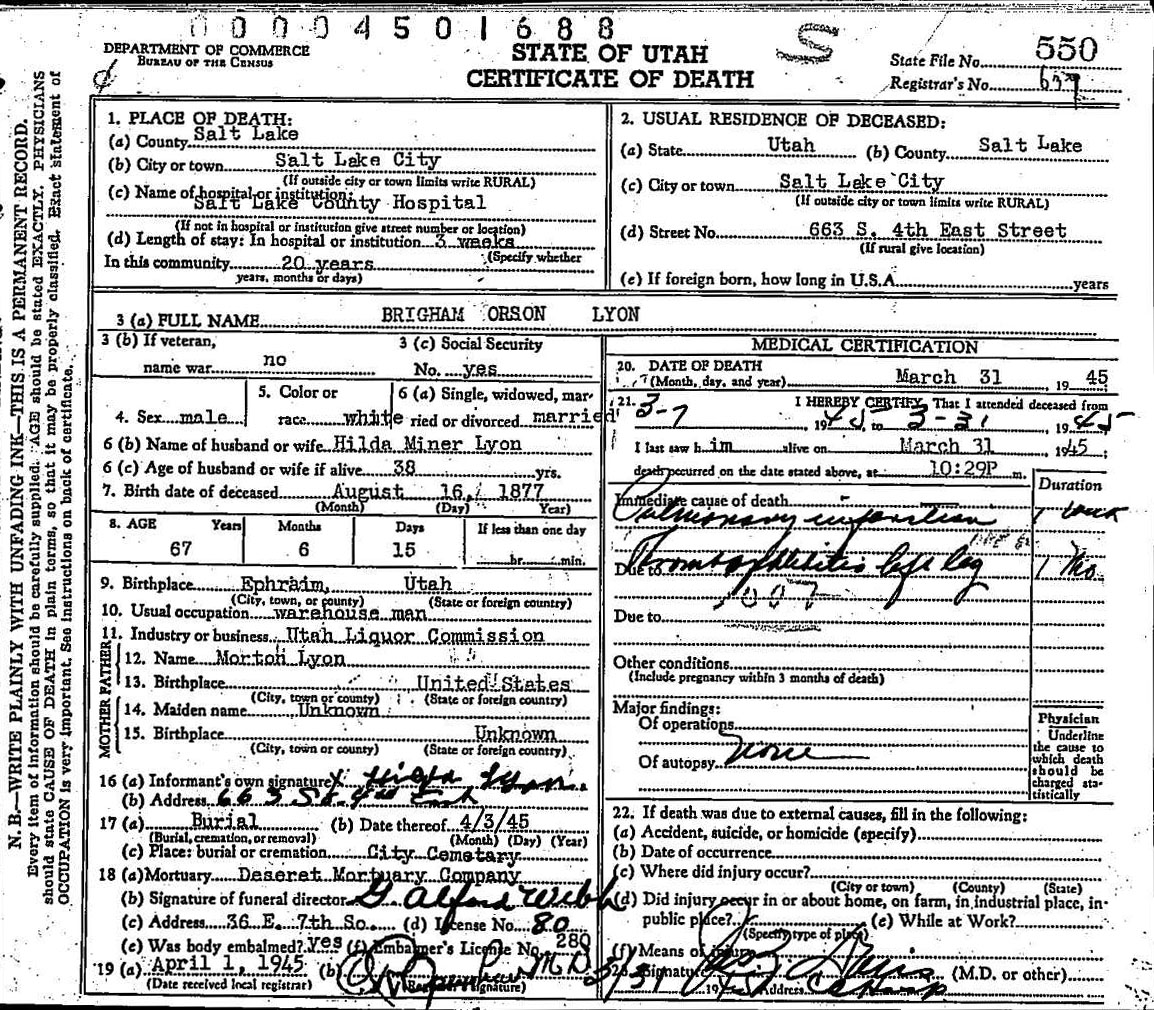 00004501688
DEPARTMENT OF COMMERCE
BUREAU OF THE CENSUS
STATE OF UTAH
CERTIFICATE OF DEATH
S
State File No. 550
Registrar's No. 639
N. B.—WRITE PLAINLY WITH UNFADING INK—THIS IS A PERMANENT RECORD.
Every item of information should be carefully supplied. AGE should be stated EXACTLY. PHYSICIANS
should state CAUSE OF DEATH in plain terms, so that it may be properly classified. Exact statement of
OCCUPATION is very important. See instructions on back of certificate.
1. PLACE OF DEATH:
(a) County Salt Lake
(b) City or town Salt Lake City
(If outside city or town limits write RURAL)
(c) Name of hospital or institution:
Salt Lake County Hospital
(If not in hospital or institution give street number or location)
(d) Length of stay: In hospital or institution 3 weeks
(Specify whether
In this community 20 years
years, months or days)
2. USUAL RESIDENCE OF DECEASED:
(a) State Utah (b) County Salt Lake
(c) City or town Salt Lake City
(If outside city or town limits write RURAL)
(d) Street No. 663 S. 4th East Street
(If rural give location)
(e) If foreign born, how long in U.S.A. years
3 (a) FULL NAME BRIGHAM ORSON LYON
3 (b) If veteran,
name war no
3 (c) Social Security
No. yes
4. Sex male
5. Color or
race white
6 (a) Single, widowed, mar-
ried or divorced married
6 (b) Name of husband or wife Hilda Miner Lyon
6 (c) Age of husband or wife if alive 38 yrs.
7. Birth date of deceased August 16, 1877
(Month) (Day) Year)
8. AGE Years Months Days If less than one day
67 6 15 hr. min.
9. Birthplace Ephraim, Utah
(City, town, or county) (State or foreign country)
10. Usual occupation warehouse man
11. Industry or business Utah Liquor Commission
FATHER
12. Name Morton Lyon
13. Birthplace United States
(City, town or county) (State or foreign country)
MOTHER
14. Maiden name Unknown
15. Birthplace Unknown
(City, town or county) (State or foreign country)
16 (a) Informant's own signature x Hilda Lyon
(b) Address 663 So. 4th East
17 (a) Burial (b) Date thereof 4/3/45
(Burial, cremation, or removal) (Month) (Day) (Year)
(c) Place: burial or cremation City Cemetary
18 (a) Mortuary Deseret Mortuary Company
(b) Signature of funeral director G Alford Webb
(c) Address 36 E. 7th So. (d) License No. 80
(e) Was body embalmed? yes (f) Embalmer's License No. 280
19 (a) April 1, 1945 (b) M D
(Date received local registrar) (Registrar's signature)
MEDICAL CERTIFICATION
20. DATE OF DEATH
(Month, day, and year) March 31 1945
21. I HEREBY CERTIFY, That I attended deceased from
3-7, 1945 to 3-31, 1945
I last saw him alive on March 31 1945;
death occurred on the date stated above, at 10:29P m.
Duration
Immediate cause of death
Pulmonary infarction 1 week
Due to Thrombophlebitis left leg 1 Mo.
1007
Due to
Other conditions
(Include pregnancy within 3 months of death)
Major findings:
Of operations
Of autopsy None
Physician
Underline
the cause to
which death
should be
charged sta-
tistically
22. If death was due to external causes, fill in the following:
(a) Accident, suicide, or homicide (specify)
(b) Date of occurrence
(c) Where did injury occur?
(City or town) (County) (State)
(d) Did injury occur in or about home, on farm, in industrial place, in-
public place? (e) While at Work?
(Specify type of place)
(f) Means of injury
23. Signature (M.D. or other)
3/31 19 Address